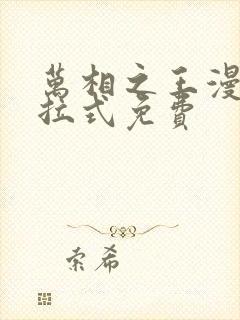 萬相之王漫
拉式免費
索希